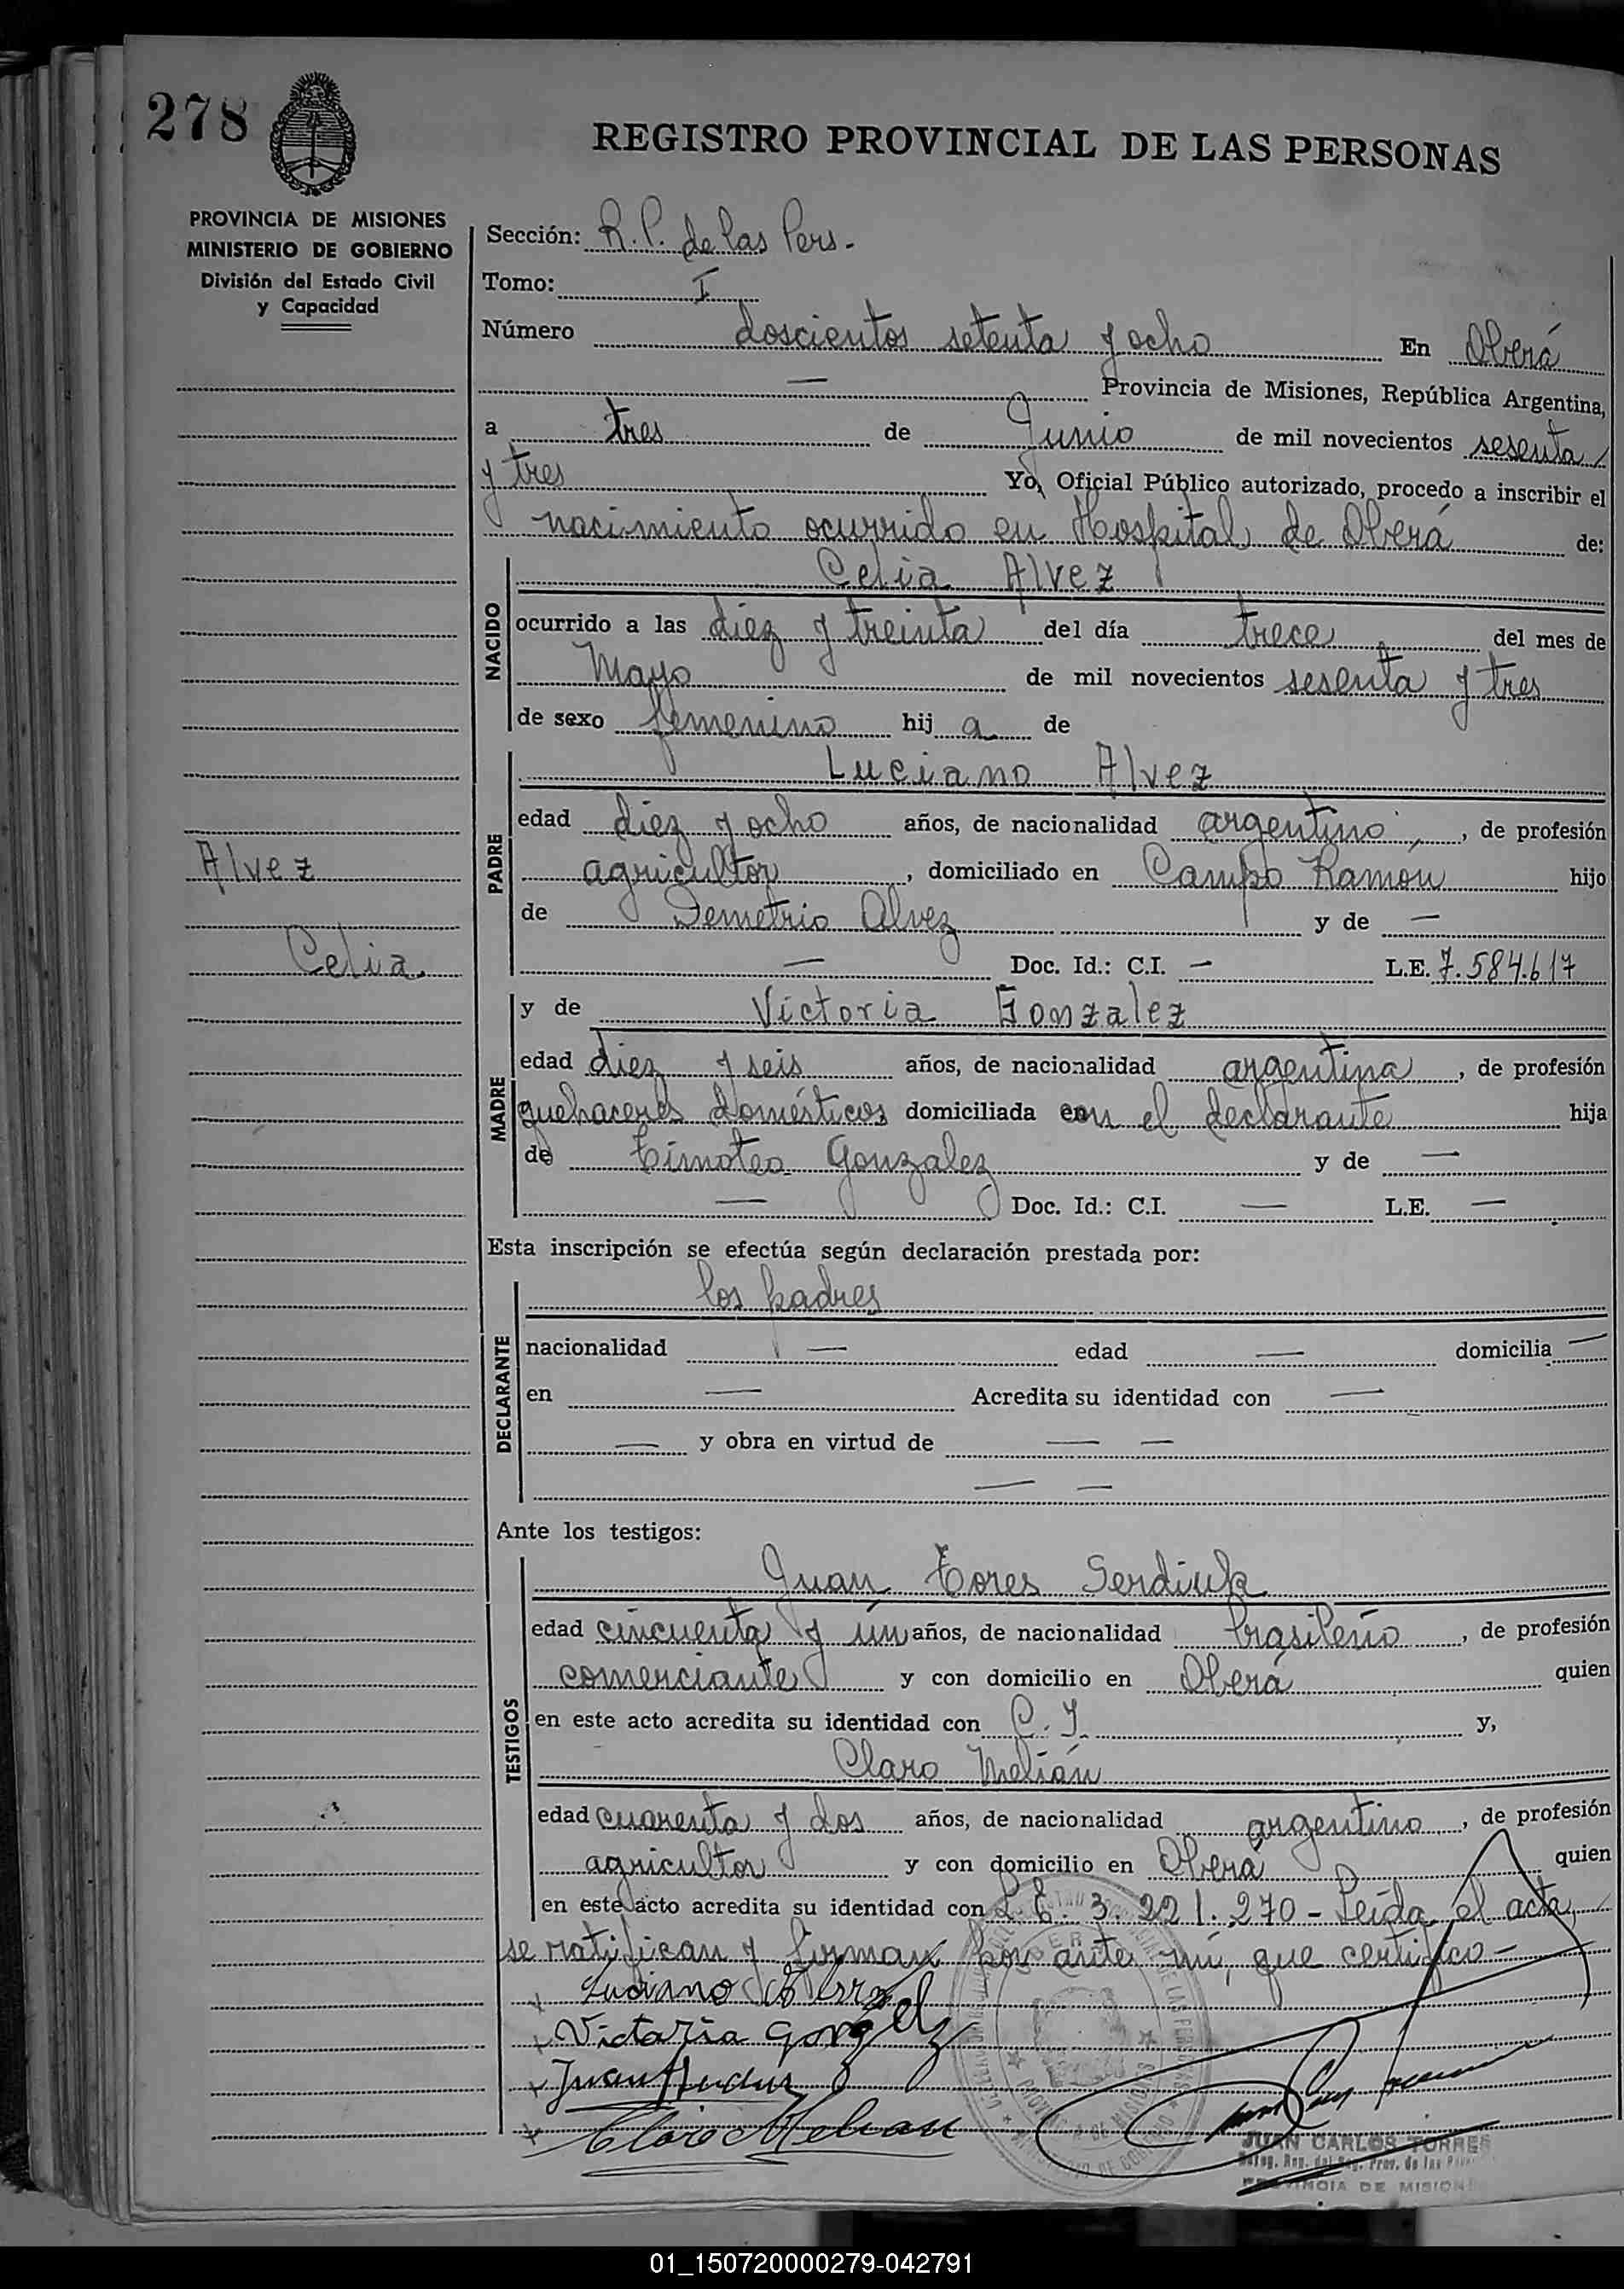 278
REGISTRO PROVINCIAL DE LAS PERSONAS
PROVINCIA DE MISIONES
MINISTERIO DE GOBIERNO
División del Estado Civil
y Capacidad
Sección: R. P. de las Pers.
Tomo: I
Número doscientos setenta y ocho En Oberá
— Provincia de Misiones, República Argentina,
a tres de Junio de mil novecientos sesenta
y tres Yo, Oficial Público autorizado, procedo a inscribir el
nacimiento ocurrido en Hospital de Oberá de:
NACIDO
Celia Alvez
ocurrido a las diez y treinta del día trece del mes de
Mayo de mil novecientos sesenta y tres
de sexo femenino hij a de
PADRE
Luciano Alvez
edad diez y ocho años, de nacionalidad argentino, de profesión
agricultor, domiciliado en Campo Ramón hijo
de Demetrio Alvez y de —
— Doc. Id.: C.I. — L.E. 7.584.617
Alvez
Celia.
MADRE
y de Victoria Gonzalez
edad diez y seis años, de nacionalidad argentina, de profesión
quehaceres domésticos domiciliada con el declarante hija
de Timoteo Gonzalez y de —
— Doc. Id.: C.I. — L.E. —
Esta inscripción se efectúa según declaración prestada por:
DECLARANTE
los padres
nacionalidad — edad — domicilia —
en — Acredita su identidad con —
— y obra en virtud de — —
— —
Ante los testigos:
TESTIGOS
Juan Tores Serdiuk
edad cincuenta y ún años, de nacionalidad brasileño, de profesión
comerciante y con domicilio en Oberá quien
en este acto acredita su identidad con C. I. y,
Claro Melián
edad cuarenta y dos años, de nacionalidad argentino, de profesión
agricultor y con domicilio en Oberá quien
en este acto acredita su identidad con L.E. 3.221.270 - Leída el acta,
se ratifican y firman por ante mí, que certifico -
Luciano
Victoria
Juan
Claro Melian
JUAN CARLOS TORRES
PROVINCIA DE MISIONES
01_150720000279-042791